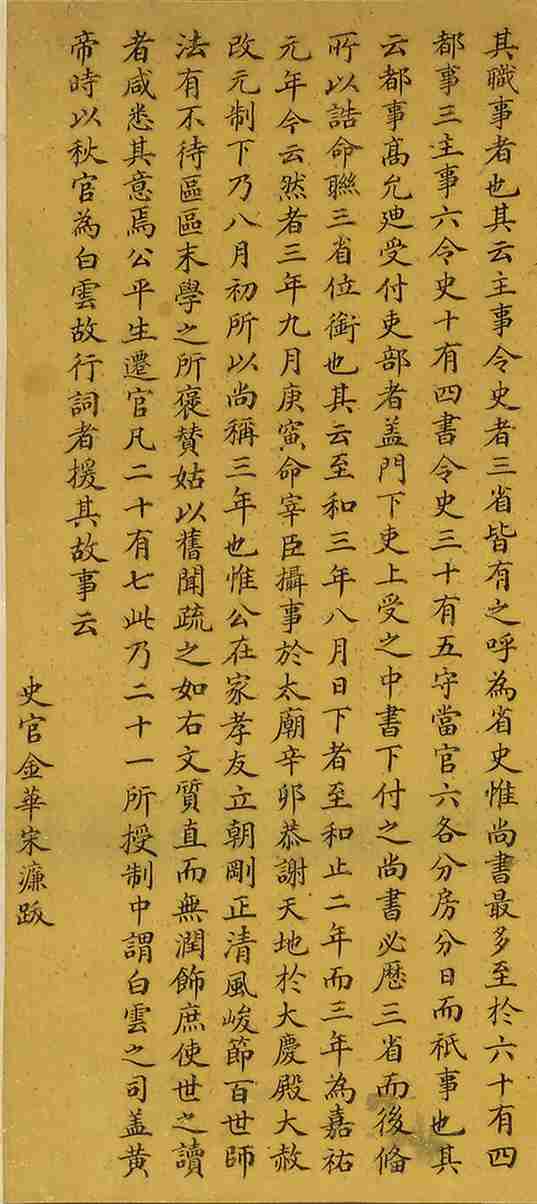 其職事者也其云主事令史者三省皆有之呼為省史惟尚書最多至於六十有四
都事三主事六令史十有四書令史三十有五守當官六各分房分日而祇事也其
云都事髙允廸受付吏部者盖門下吏上受之中書下付之尚書必歴三省而後偹
所以誥命聯三省位銜也其云至和三年八月日下者至和止二年而三年為嘉祐
元年今云然者三年九月庚寅命宰臣攝事於太廟辛卯恭謝天地於大慶殿大赦
改元制下乃八月初所以尚稱三年也惟公在家孝友立朝剛正清風峻節百世師
法有不待區區末學之所褒賛姑以舊聞疏之如右文質直而無潤飾庶使世之讀
者咸悉其意焉公平生遷官凡二十有七此乃二十一所授制中謂白雲之司盖黄
帝時以秋官為白雲故行詞者援其故事云
史官金華宋濂跋